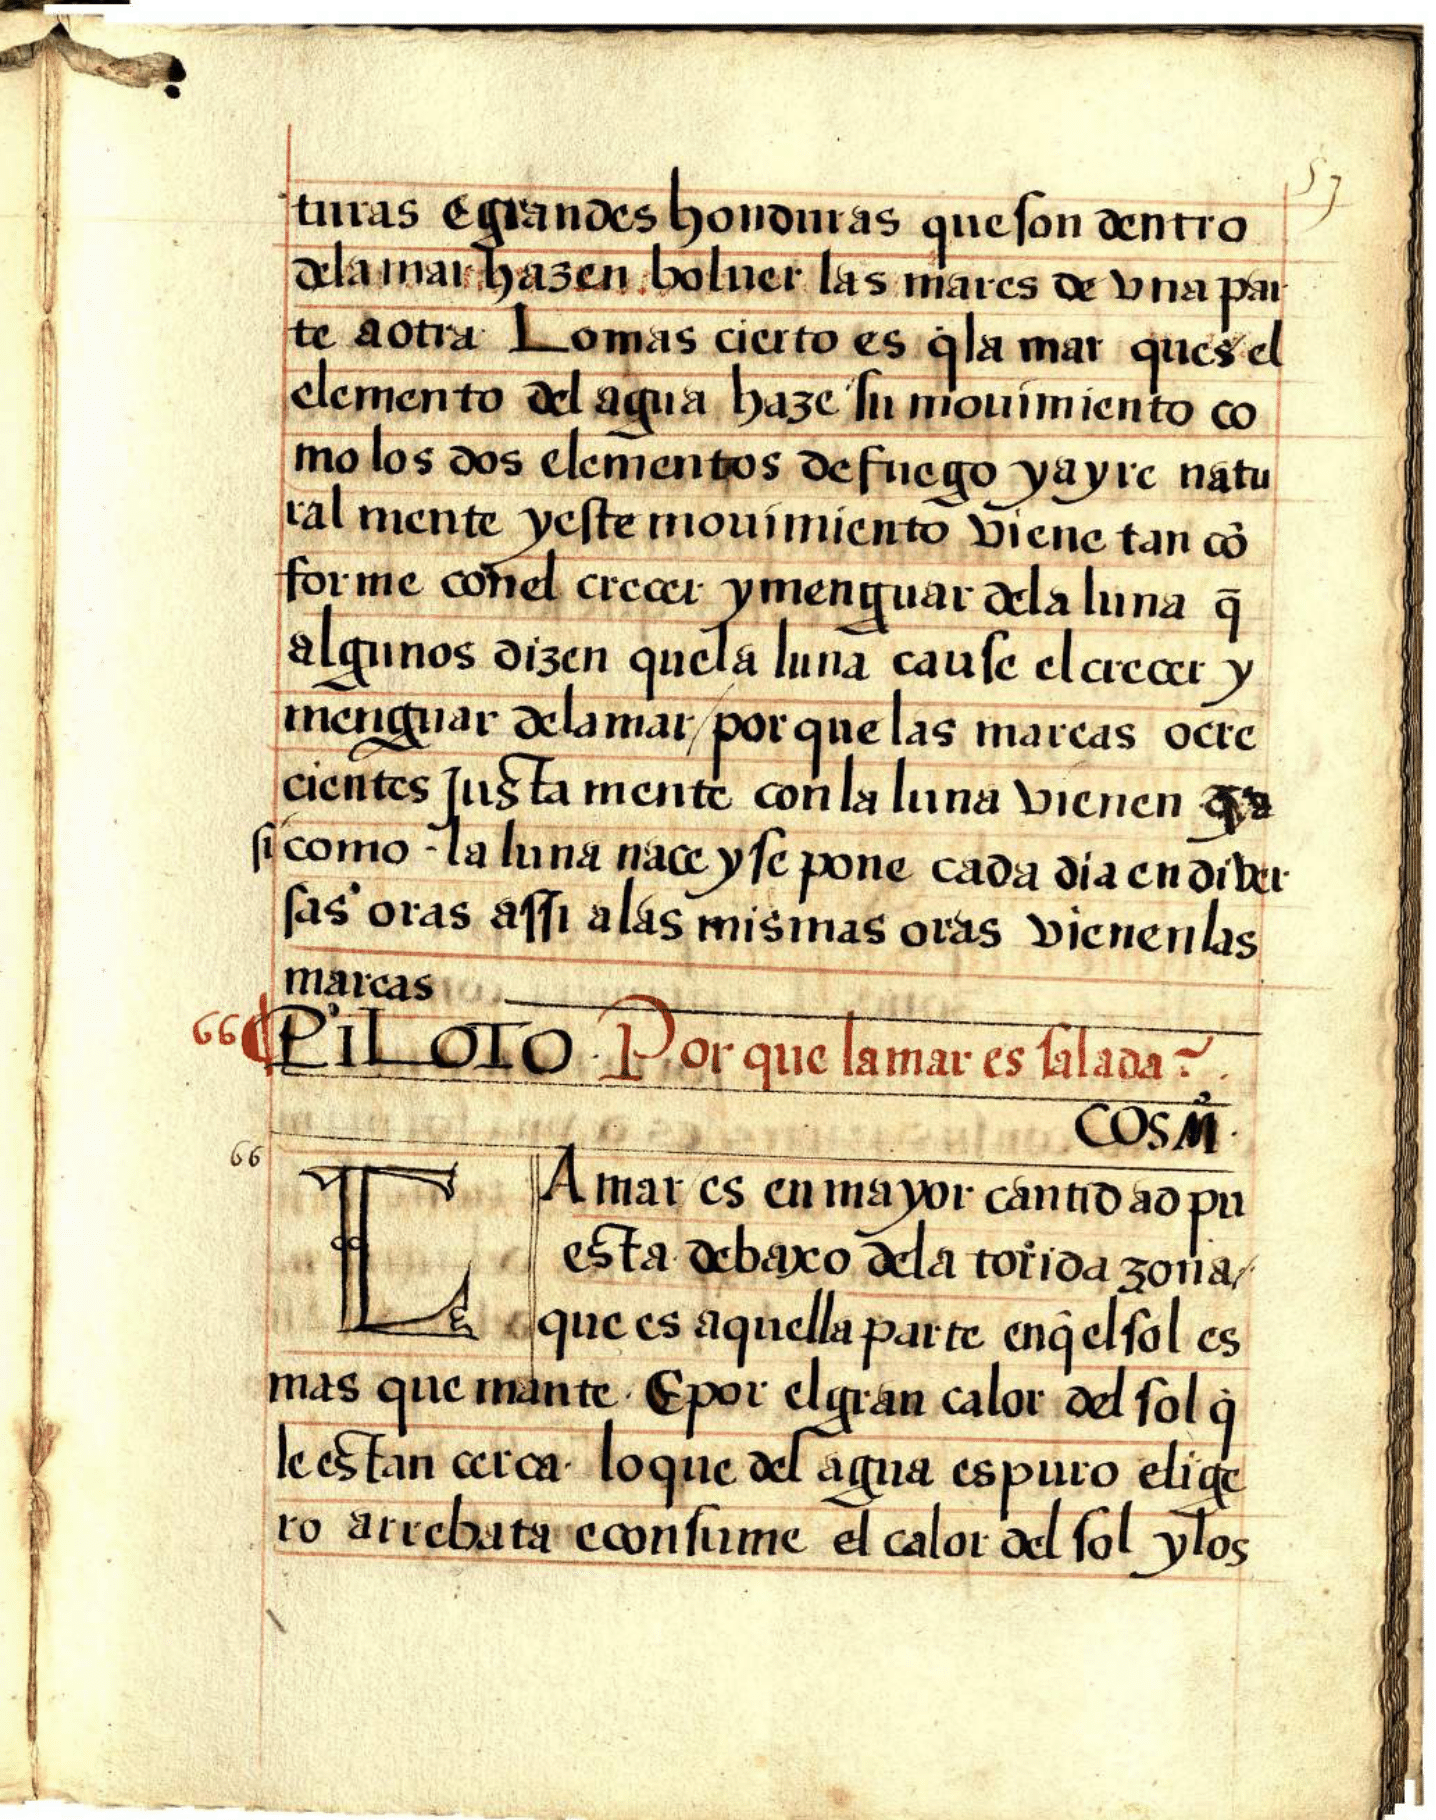 57
turas e grandes honduras que son dentro
dela mar hazen boluer las mares de vna par
te a otra Lo mas cierto es q̃ la mar ques el
elemento del agua haze su mouimiento co
mo los dos elementos de fuego y ayre natu
ral mente y este mouimiento viene tan cõ
forme con el crecer y menguar dela luna q̃
algunos dizen que la luna cause el crecer y
menguar dela mar / por que las mareas o cre
cientes Justa mente con la luna vienen
si como la luna nace y se pone cada dia en diver
sas oras assi a las mismas oras vienen las
mareas
66 PILOTO. Por que la mar es salada?
COSM̃.
66
LA mar es en mayor cantidad pu
esta debaxo dela torrida zona /
que es aquella parte en q̃ el sol es
mas que mante. E por el gran calor del sol q̃
le estan cerca. lo que del agua es puro e lige
ro arrebata e consume el calor del sol y los